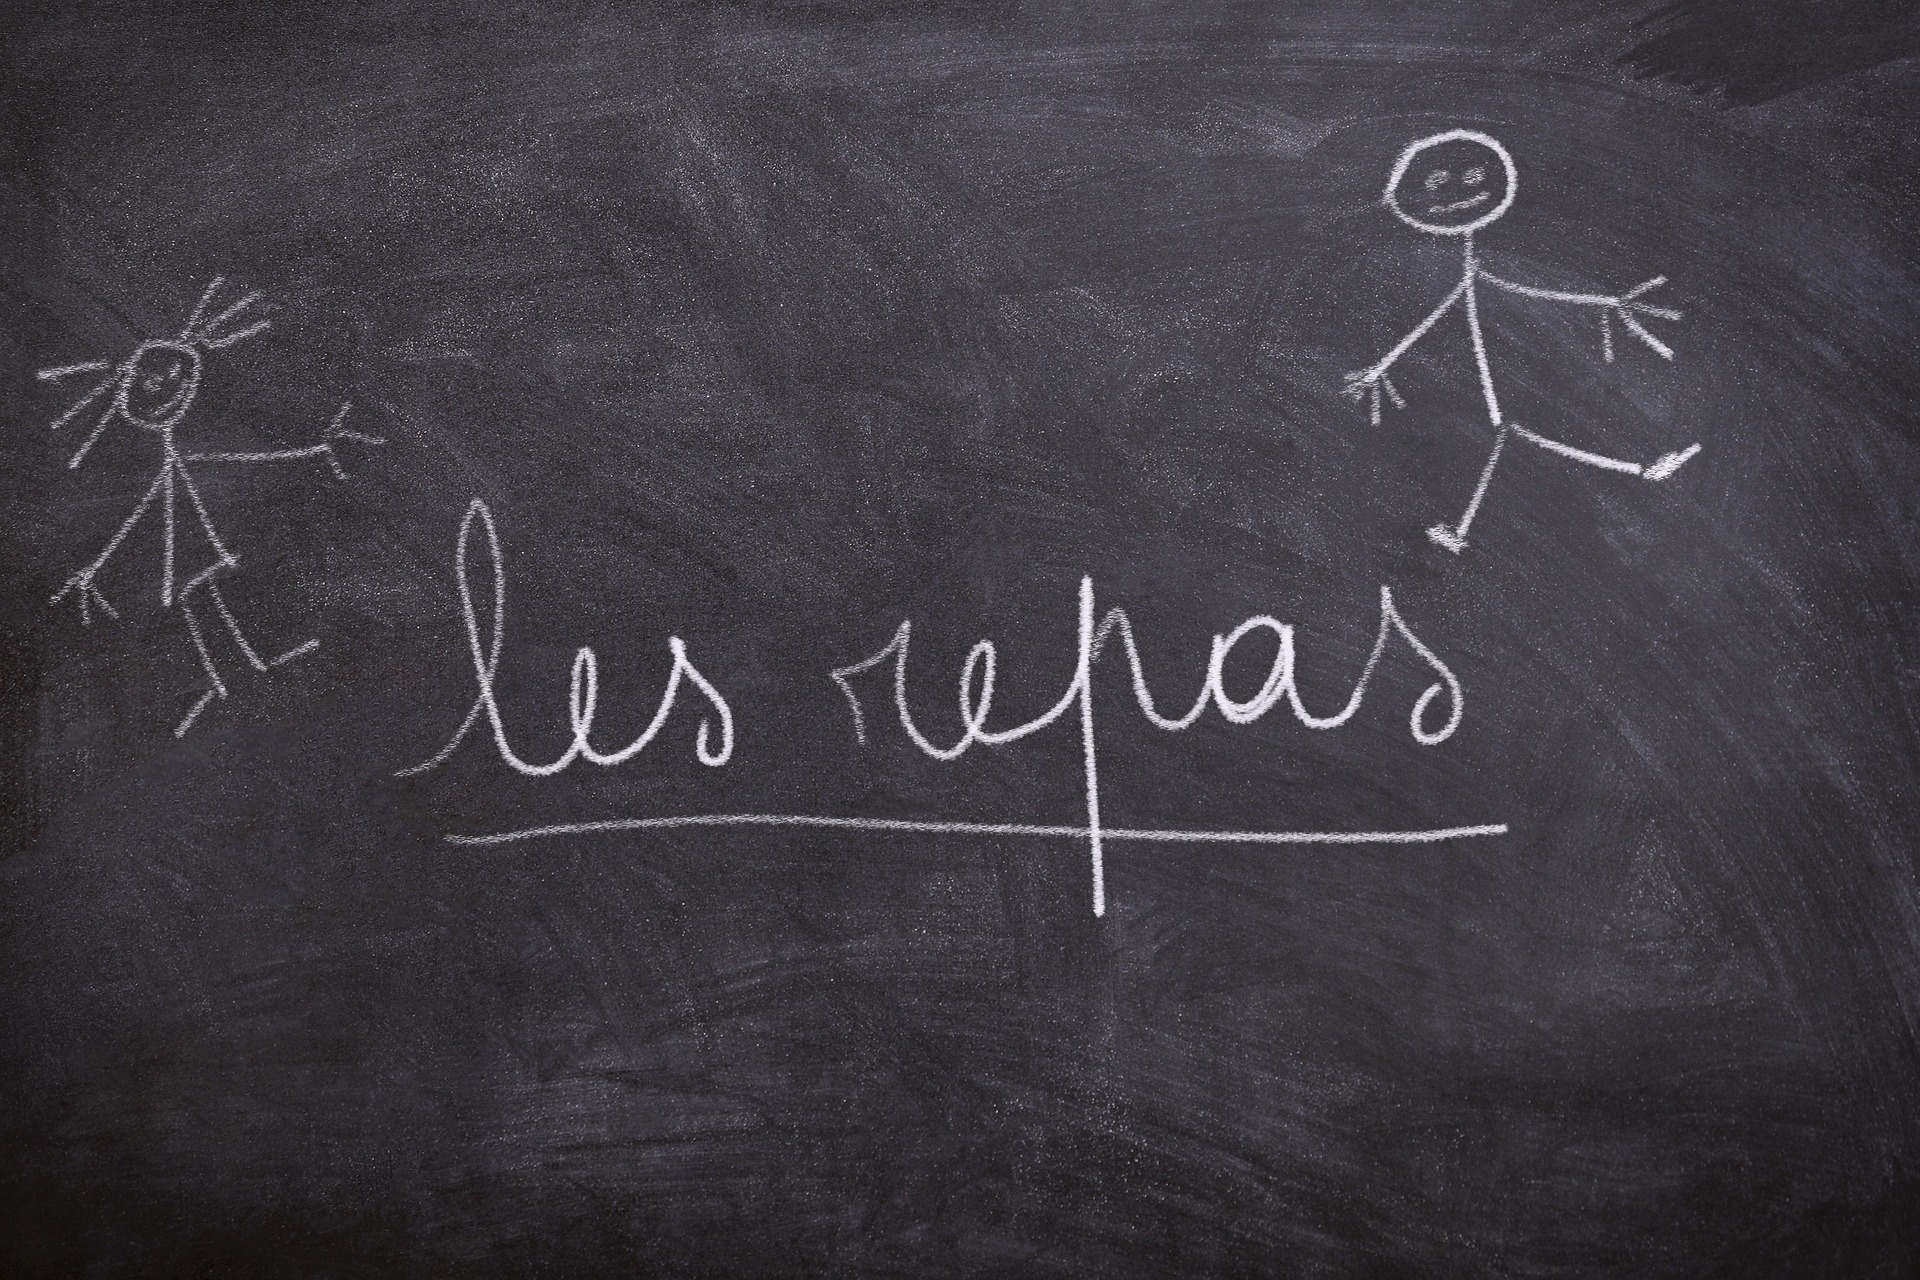 les repas